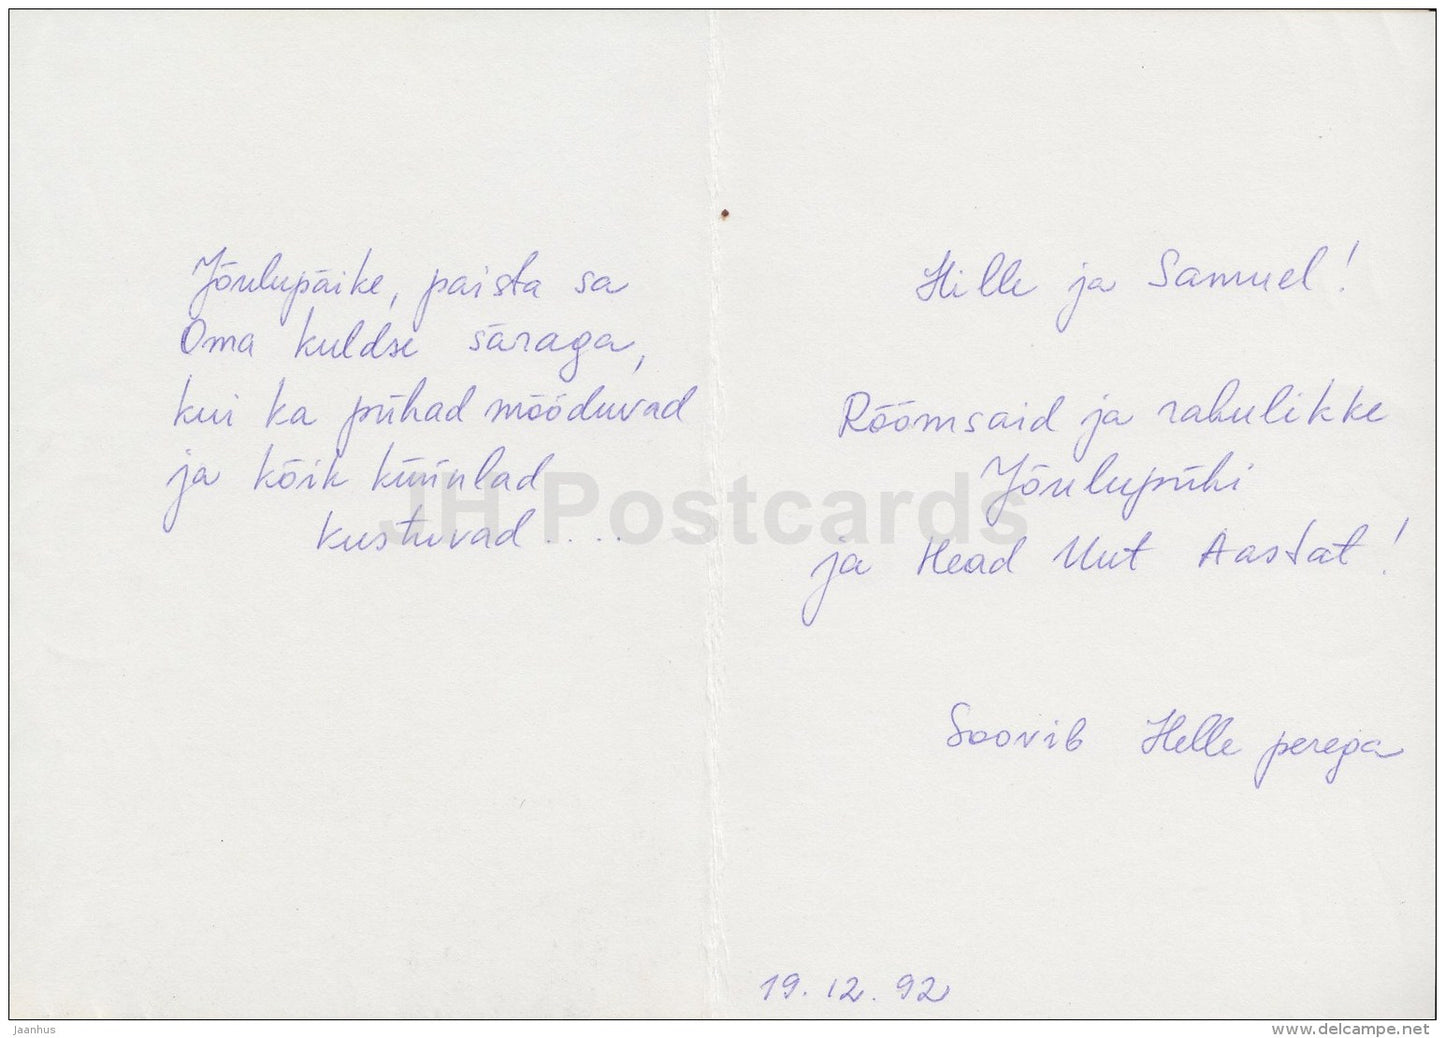 Jõulupäike, paista sa
Oma kuldse säraga,
kui ka pühad mööduvad
ja kõik küünlad
kustuvad....
Hille ja Samuel!
Rõõmsaid ja rahulikke
Jõulupühi
ja Head Uut Aastat!
Soovib Helle perega
19.12.92
JH Postcards
jaanhus
www.delcampe.net